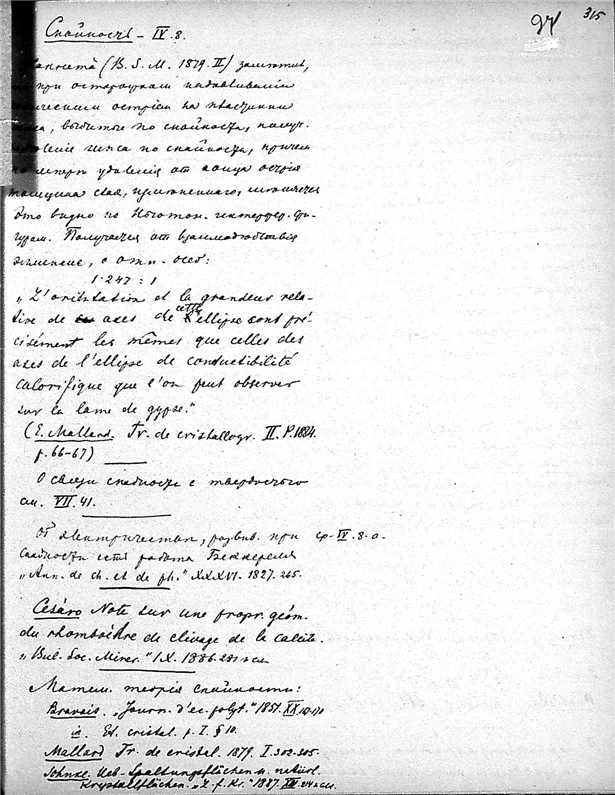 315
Спайность – IV. 8.
(B. S. M. 1879. II) заметил,
при осторожном надавливании
острием на пластинки
, выбитые по спайности, получ.
гипса по спайности, причем
удаления от конца острия
толщина слоя,
Это видно по Ньютон. интерфер. фи-
гурам. Получается от взаимодействия
, с отн. осей:
1·247 : 1
„L'orientation et la grandeur rela-
tive de axes de cette ellipse sont pré-
cisément les mêmes que celles des
axes de l'ellipse de conductibilité
calorifique que l'on peut observer
sur la lame de gypse."
(E. Mallard. Tr. de cristallogr. II. P. 1884.
p. 66-67)
О связи спайности с твердостью
см. VII. 41.
Об электричестве, развив. при ср. IV. 8. a.
спайности есть работа Беккереля
„Ann. de ch. et de ph." XXXVI. 1827. 265.
Cesáro Note sur une propr. géom.
du rhomboèdre de clivage de la calcite.
„Bul. Soc. Miner." IX. 1886. 281 и сл.
Матем. теория спайности:
Bravais. „Journ. d'éc. polyt." 1851. XX
in. Et. cristal. p. I. § 10.
Mallard Tr. de cristal. 1879. I. 302-305.
Sohnke. Ueb. Spaltungsflächen u. natürl.
Krystallflächen. „Z. f. Kr." 1887. XIII. и сл.